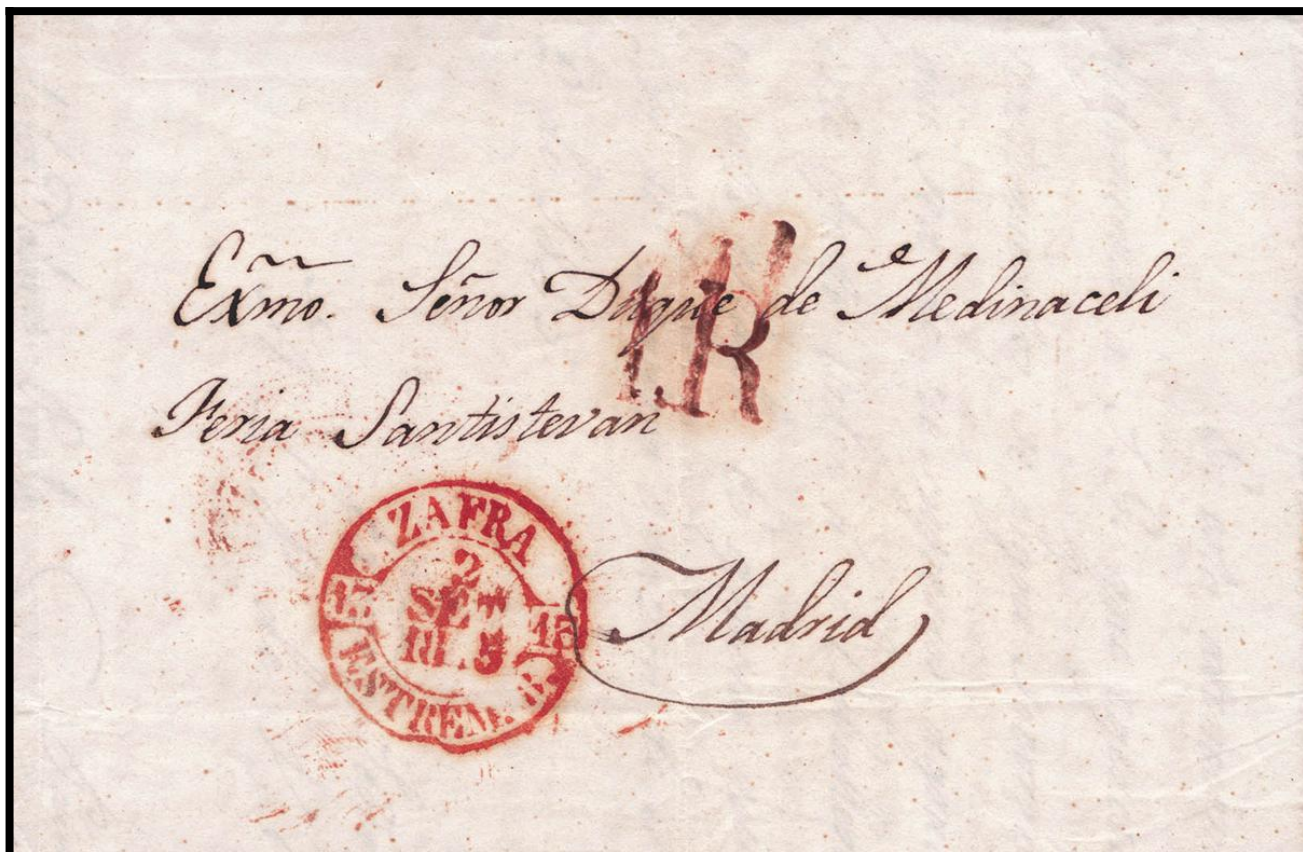 Exmo. Señor Duque de Medinaceli
1R
Feria Santistevan
ZAFRA
2
SET
15
15
ESTREM. B.
Madrid